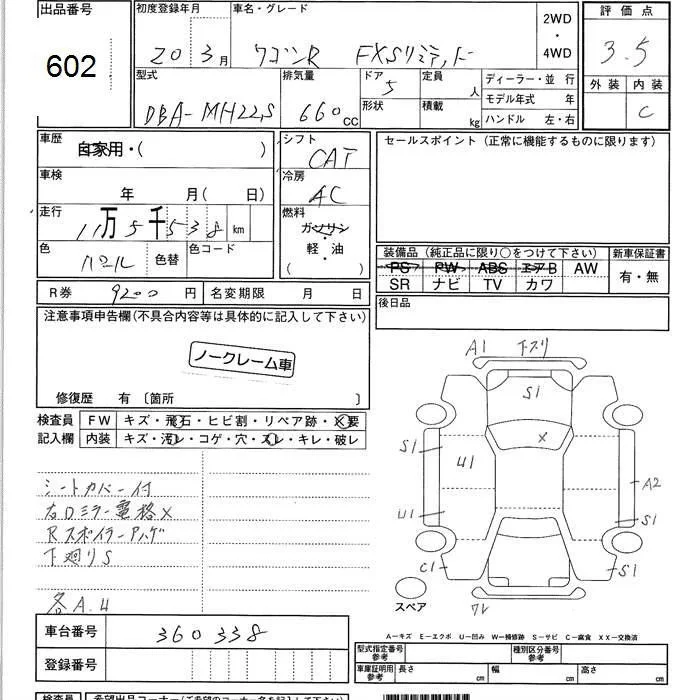 出品番号 初度登録年月 車名・グレード 2WD・4WD 評価点
602 20 3月 ワゴンR FXSリミテッド 3.5
型式 排気量 ドア 定員 人 ディーラー・並 行 外装 内装
DBA-MH22S 660cc 5 形状 積載 kg モデル年式 年 C
ハンドル 左・右
車歴 自家用・( ) シフト CAT セールスポイント (正常に機能するものに限ります)
車検 年 月( 日) 冷房 AC
走行 11万5千538 km 燃料 ガソリン・軽・油 ( )
色 パール 色替 色コード
装備品 (純正品に限り○をつけて下さい) 新車保証書
PS PW ABS エアB AW 有・無
SR ナビ TV カワ
R券 9200円 名変期限 月 日 後日品
注意事項申告欄(不具合内容等は具体的に記入して下さい)
ノークレーム車
修復歴 有 〔箇所 〕
検査員 FW キズ・飛石・ヒビ割・リペア跡・X要
記入欄 内装 キズ・汚レ・コゲ・穴・スレ・キレ・破レ
シートカバー付
右Dミラー電格×
Rスポイラーハゲ
下廻りS
各A.U
A1 下スリ
S1
X
S1
U1
A2
U1
S1
C1
S1
スペア
ワレ
A-キズ E-エクボ U-凹み W-補修跡 S-サビ C-腐食 XX-交換済
車台番号 360338
登録番号
型式指定番号 参考 種別区分番号 参考
車庫証明用 参考 長さ cm 幅 cm 高さ cm
検査員 希望出品コーナー(ご希望のコーナー名を記入下さい)